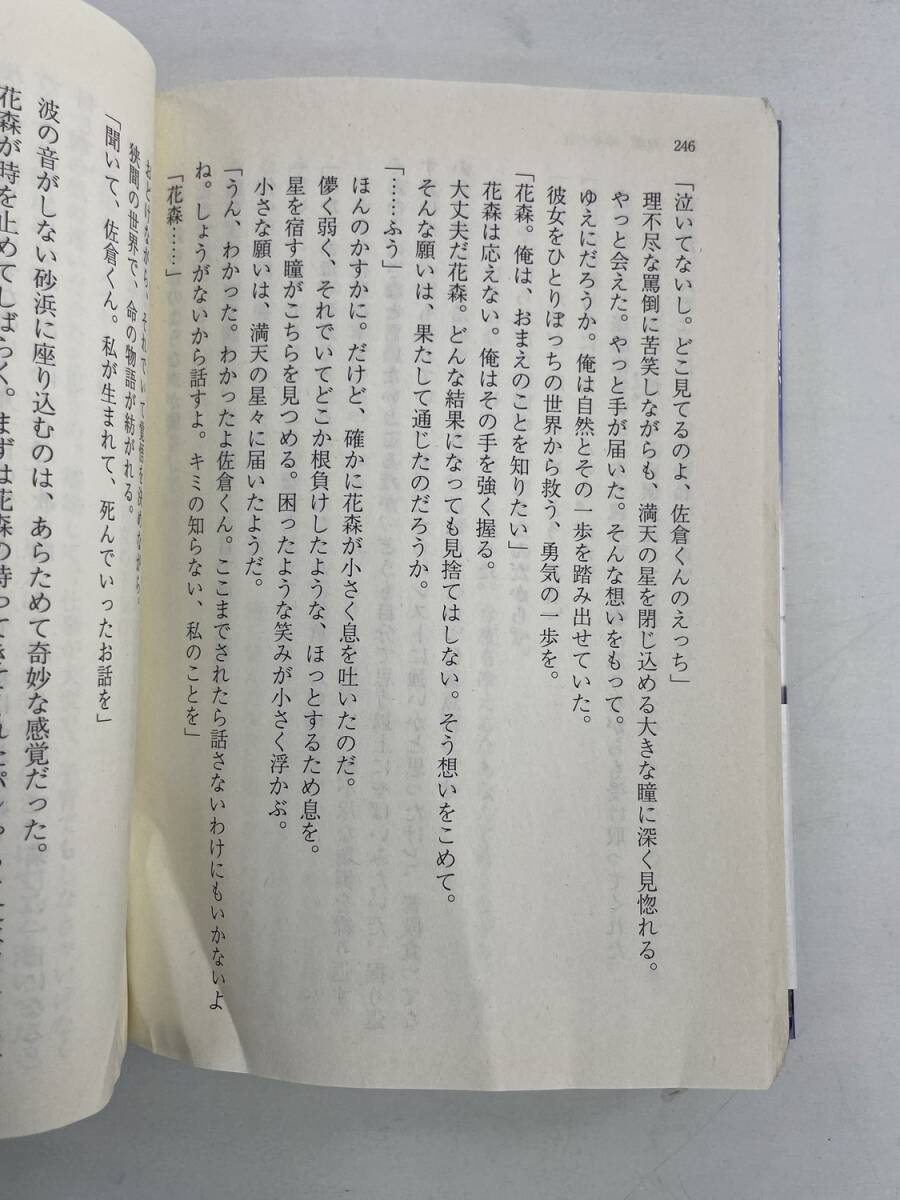 246
「泣いてないし。どこ見てるのよ、佐倉くんのえっち」
理不尽な罵倒に苦笑しながらも、満天の星を閉じ込める大きな瞳に深く見惚れる。
やっと会えた。やっと手が届いた。そんな想いをもって。
ゆえにだろうか。俺は自然とその一歩を踏み出せていた。
彼女をひとりぼっちの世界から救う、勇気の一歩を。
「花森。俺は、おまえのことを知りたい」
花森は応えない。俺はその手を強く握る。
大丈夫だ花森。どんな結果になっても見捨てはしない。そう想いをこめて。
そんな願いは、果たして通じたのだろうか。
「……ふう」
ほんのかすかに。だけど、確かに花森が小さく息を吐いたのだ。
儚く弱く、それでいてどこか根負けしたような、ほっとするため息を。
星を宿す瞳がこちらを見つめる。困ったような笑みが小さく浮かぶ。
小さな願いは、満天の星々に届いたようだ。
「うん、わかった。わかったよ佐倉くん。ここまでされたら話さないわけにもいかないよ
ね。しょうがないから話すよ。キミの知らない、私のことを」
「花森……」
おどけながら、それでいて覚悟を決めながら。
狭間の世界で、命の物語が紡がれる。
「聞いて、佐倉くん。私が生まれて、死んでいったお話を」
波の音がしない砂浜に座り込むのは、あらためて奇妙な感覚だった。
花森が時を止めてしばらく。まずは花森の持ってきて